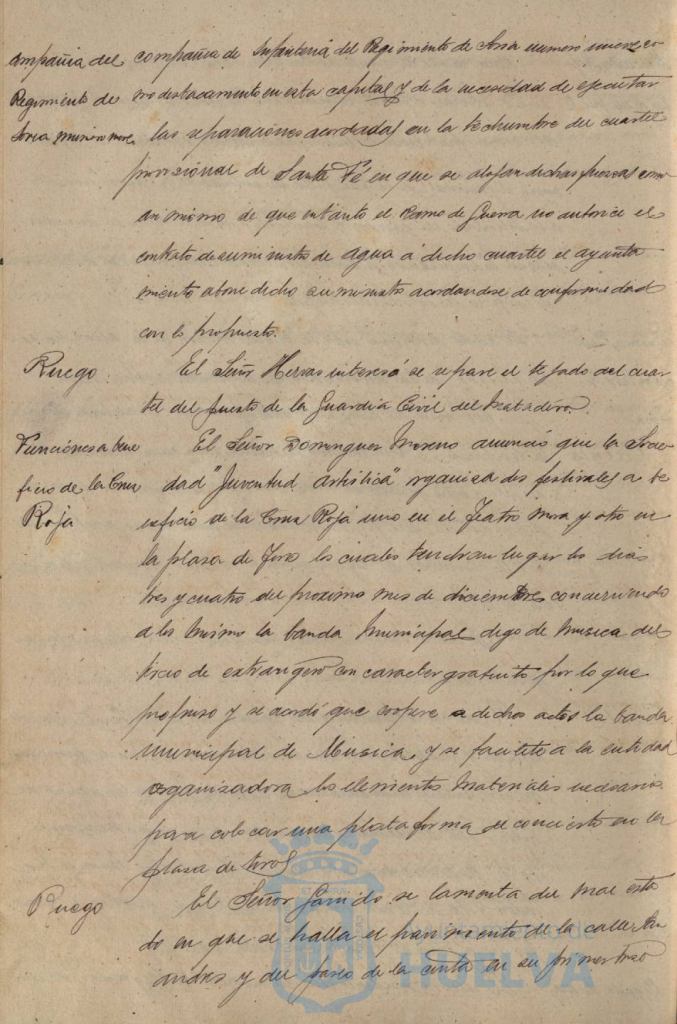 ompañia del
Regimiento de
Soria numero nueve
compañia de Infanteria del Regimiento de Soria numero nueve co
mo destacamento en esta capital y de la necesidad de ejecutar
las reparaciones acordadas en la techumbre del cuartel
provisional de Santa Fé en que se alojan dichas fuerzas como
asi mismo de que en tanto el Ramo de Guerra no autorice el
contrato de suministro de agua á dicho cuartel el ayunta
miento abone dicho suministro acordandose de conformidad
con lo propuesto.
Ruego
El Señor Hervas interesó se repare el tejado del cuar
tel del puesto de la Guardia Civil del Matadero.
Funciones a bene
ficio de la Cruz
Roja
El Señor Dominguez Moreno anunció que la Socie
dad "Juventud Artistica" organiza dos festivales a be
neficio de la Cruz Roja uno en el Teatro Mora y otro en
la plaza de Toros los cuales tendran lugar los dias
tres y cuatro del proximo mes de diciembre concurriendo
a los mismo la banda Municipal digo de musica del
tercio de extrangero con caracter gratuito por lo que
propuso y se acordó que coopere a dichos actos la banda
municipal de Musica y se facilite a la entidad
organizadora los elementos materiales necesarios
para colocar una plataforma de concierto en la
plaza de toros
Ruego
El Señor Garrido se lamenta del mal esta
do en que se halla el pavimento de la calle
y del paseo de la cinta en su primer trozo
HUELVA